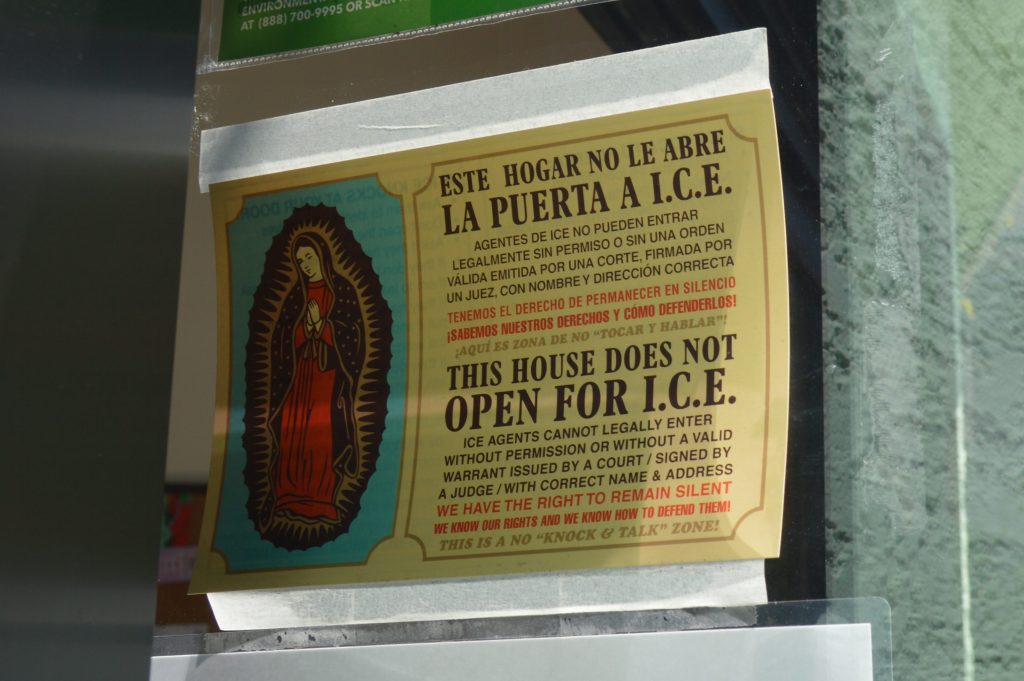 ENVIRONMEN
AT (888) 700-9995 OR SCAN
ESTE HOGAR NO LE ABRE
LA PUERTA A I.C.E.
AGENTES DE ICE NO PUEDEN ENTRAR
LEGALMENTE SIN PERMISO O SIN UNA ORDEN
VÁLIDA EMITIDA POR UNA CORTE, FIRMADA POR
UN JUEZ, CON NOMBRE Y DIRECCIÓN CORRECTA
TENEMOS EL DERECHO DE PERMANECER EN SILENCIO
¡SABEMOS NUESTROS DERECHOS Y CÓMO DEFENDERLOS!
¡AQUÍ ES ZONA DE NO "TOCAR Y HABLAR"!
THIS HOUSE DOES NOT
OPEN FOR I.C.E.
ICE AGENTS CANNOT LEGALLY ENTER
WITHOUT PERMISSION OR WITHOUT A VALID
WARRANT ISSUED BY A COURT / SIGNED BY
A JUDGE / WITH CORRECT NAME & ADDRESS
WE HAVE THE RIGHT TO REMAIN SILENT
WE KNOW OUR RIGHTS AND WE KNOW HOW TO DEFEND THEM!
THIS IS A NO "KNOCK & TALK" ZONE!